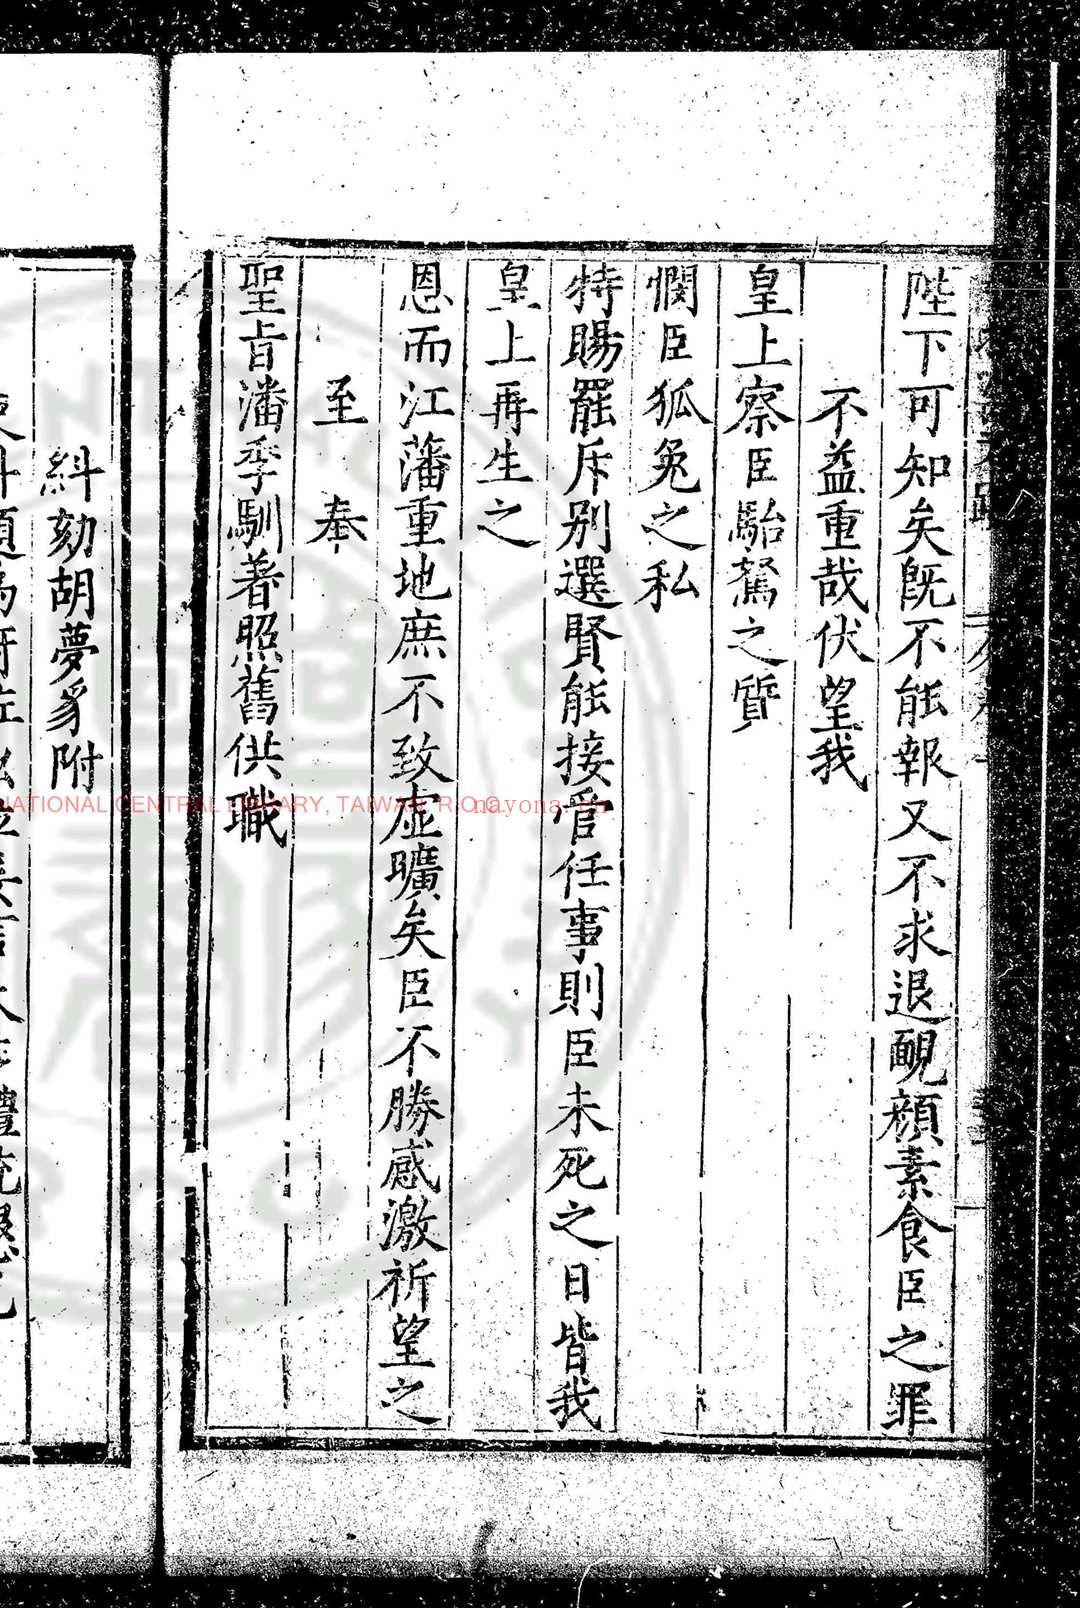 陛下可知矣旣不能報又不求退覥顔素食臣之罪
不益重哉伏望我
皇上察臣駘駑之質
憫臣狐兔之私
特賜罷斥别選賢能接管任事則臣未死之日皆我
皇上再生之
恩而江藩重地庶不致虚曠矣臣不勝感激祈望之
至奉
聖旨潘季馴着照舊供職
糾劾胡夢豸附
NATIONAL CENTRAL LIBRARY, TAIWAN R.O.C.
nayona.cn